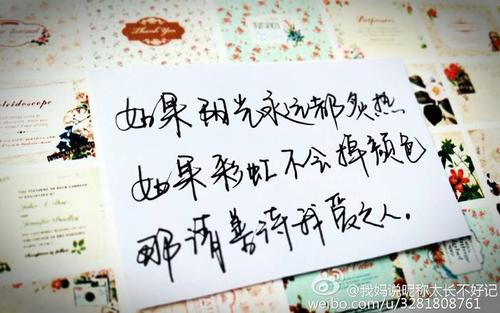 Thank You
Kaleidoscope
如果阳光永远都炙热
如果彩虹不会掉颜色
那请善待我爱之人。
@我妈说昵称太长不好记
weibo.com/u/3281808761